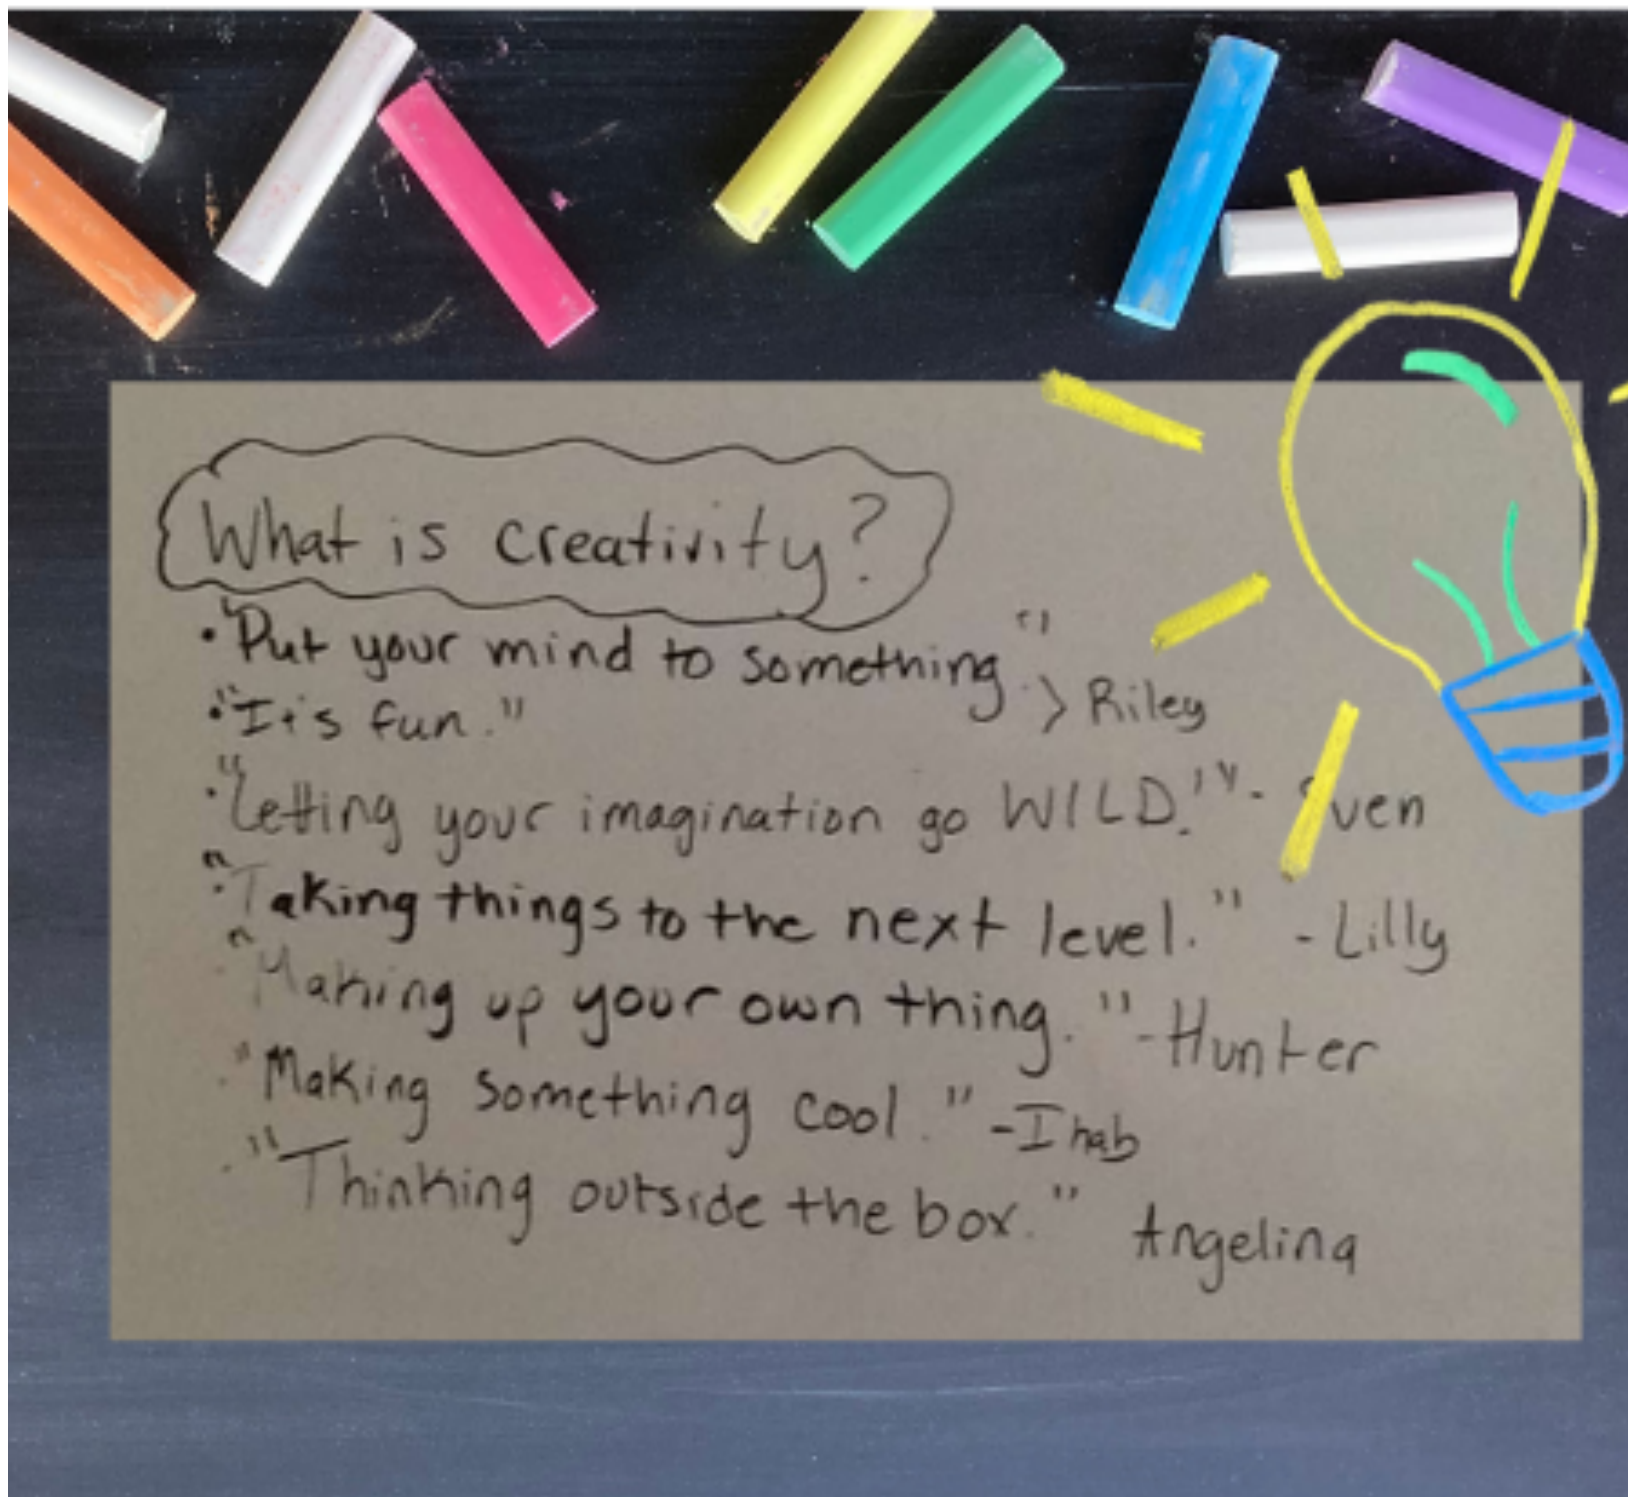 What is creativity?
• "Put your mind to something" > Riley
• "It's fun."
• "Letting your imagination go WILD!" -
• "Taking things to the next level." - Lilly
• "Making up your own thing." - Hunter
• "Making something cool." - Ihab
• "Thinking outside the box." Angelina